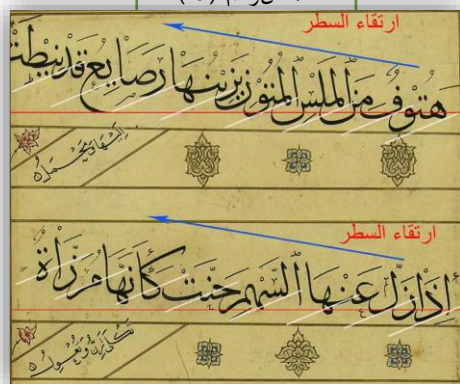 ارتقاء السطر
هَتُوفٌ مِنَ الْمُلْسِ الْمُتُونِ يَزِينُهَا رَصَايِعُ قَدْ نِيطَتْ
إليها ومحمل
ارتقاء السطر
إِذَا زَلَّ عَنْهَا السَّهْمُ حَنَّتْ كَأَنَّهَا مُرَزَّأَةٌ